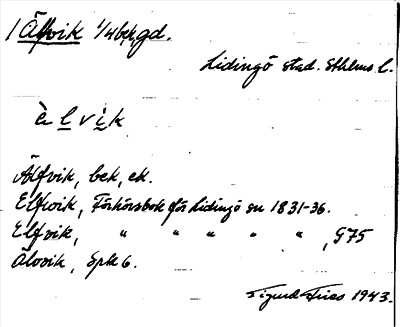 1 Älfvik 1/4 bek. gd.
Lidingö stad. Sthlms l.
ȧ l v i k
Älfvik, bek, ek.
Elfvik, Förhörsbok för Lidingö sn 1831-36.
Elfvik, " " " " " , G75
Älvvik, Spk 6.
Sigurd Fries 1943.